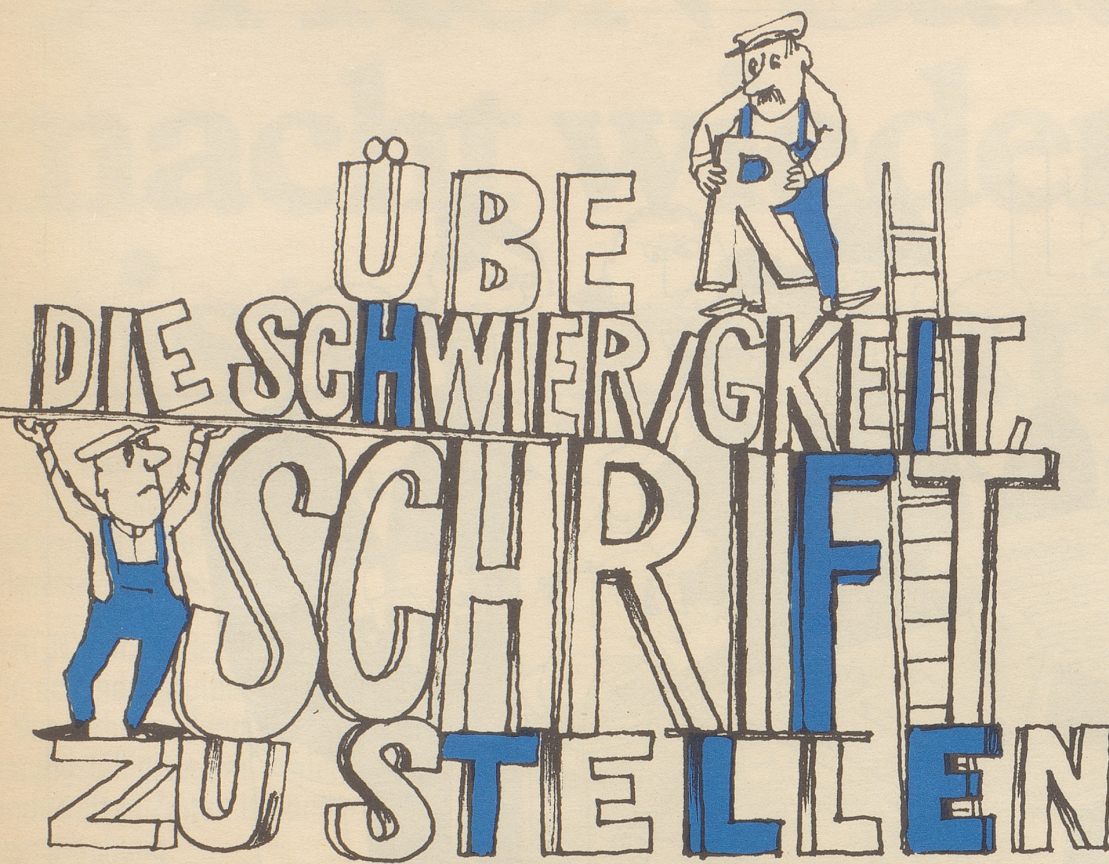 ÜBER
DIE SCHWIERIGKEIT,
SCHRIFT
ZU STELLEN